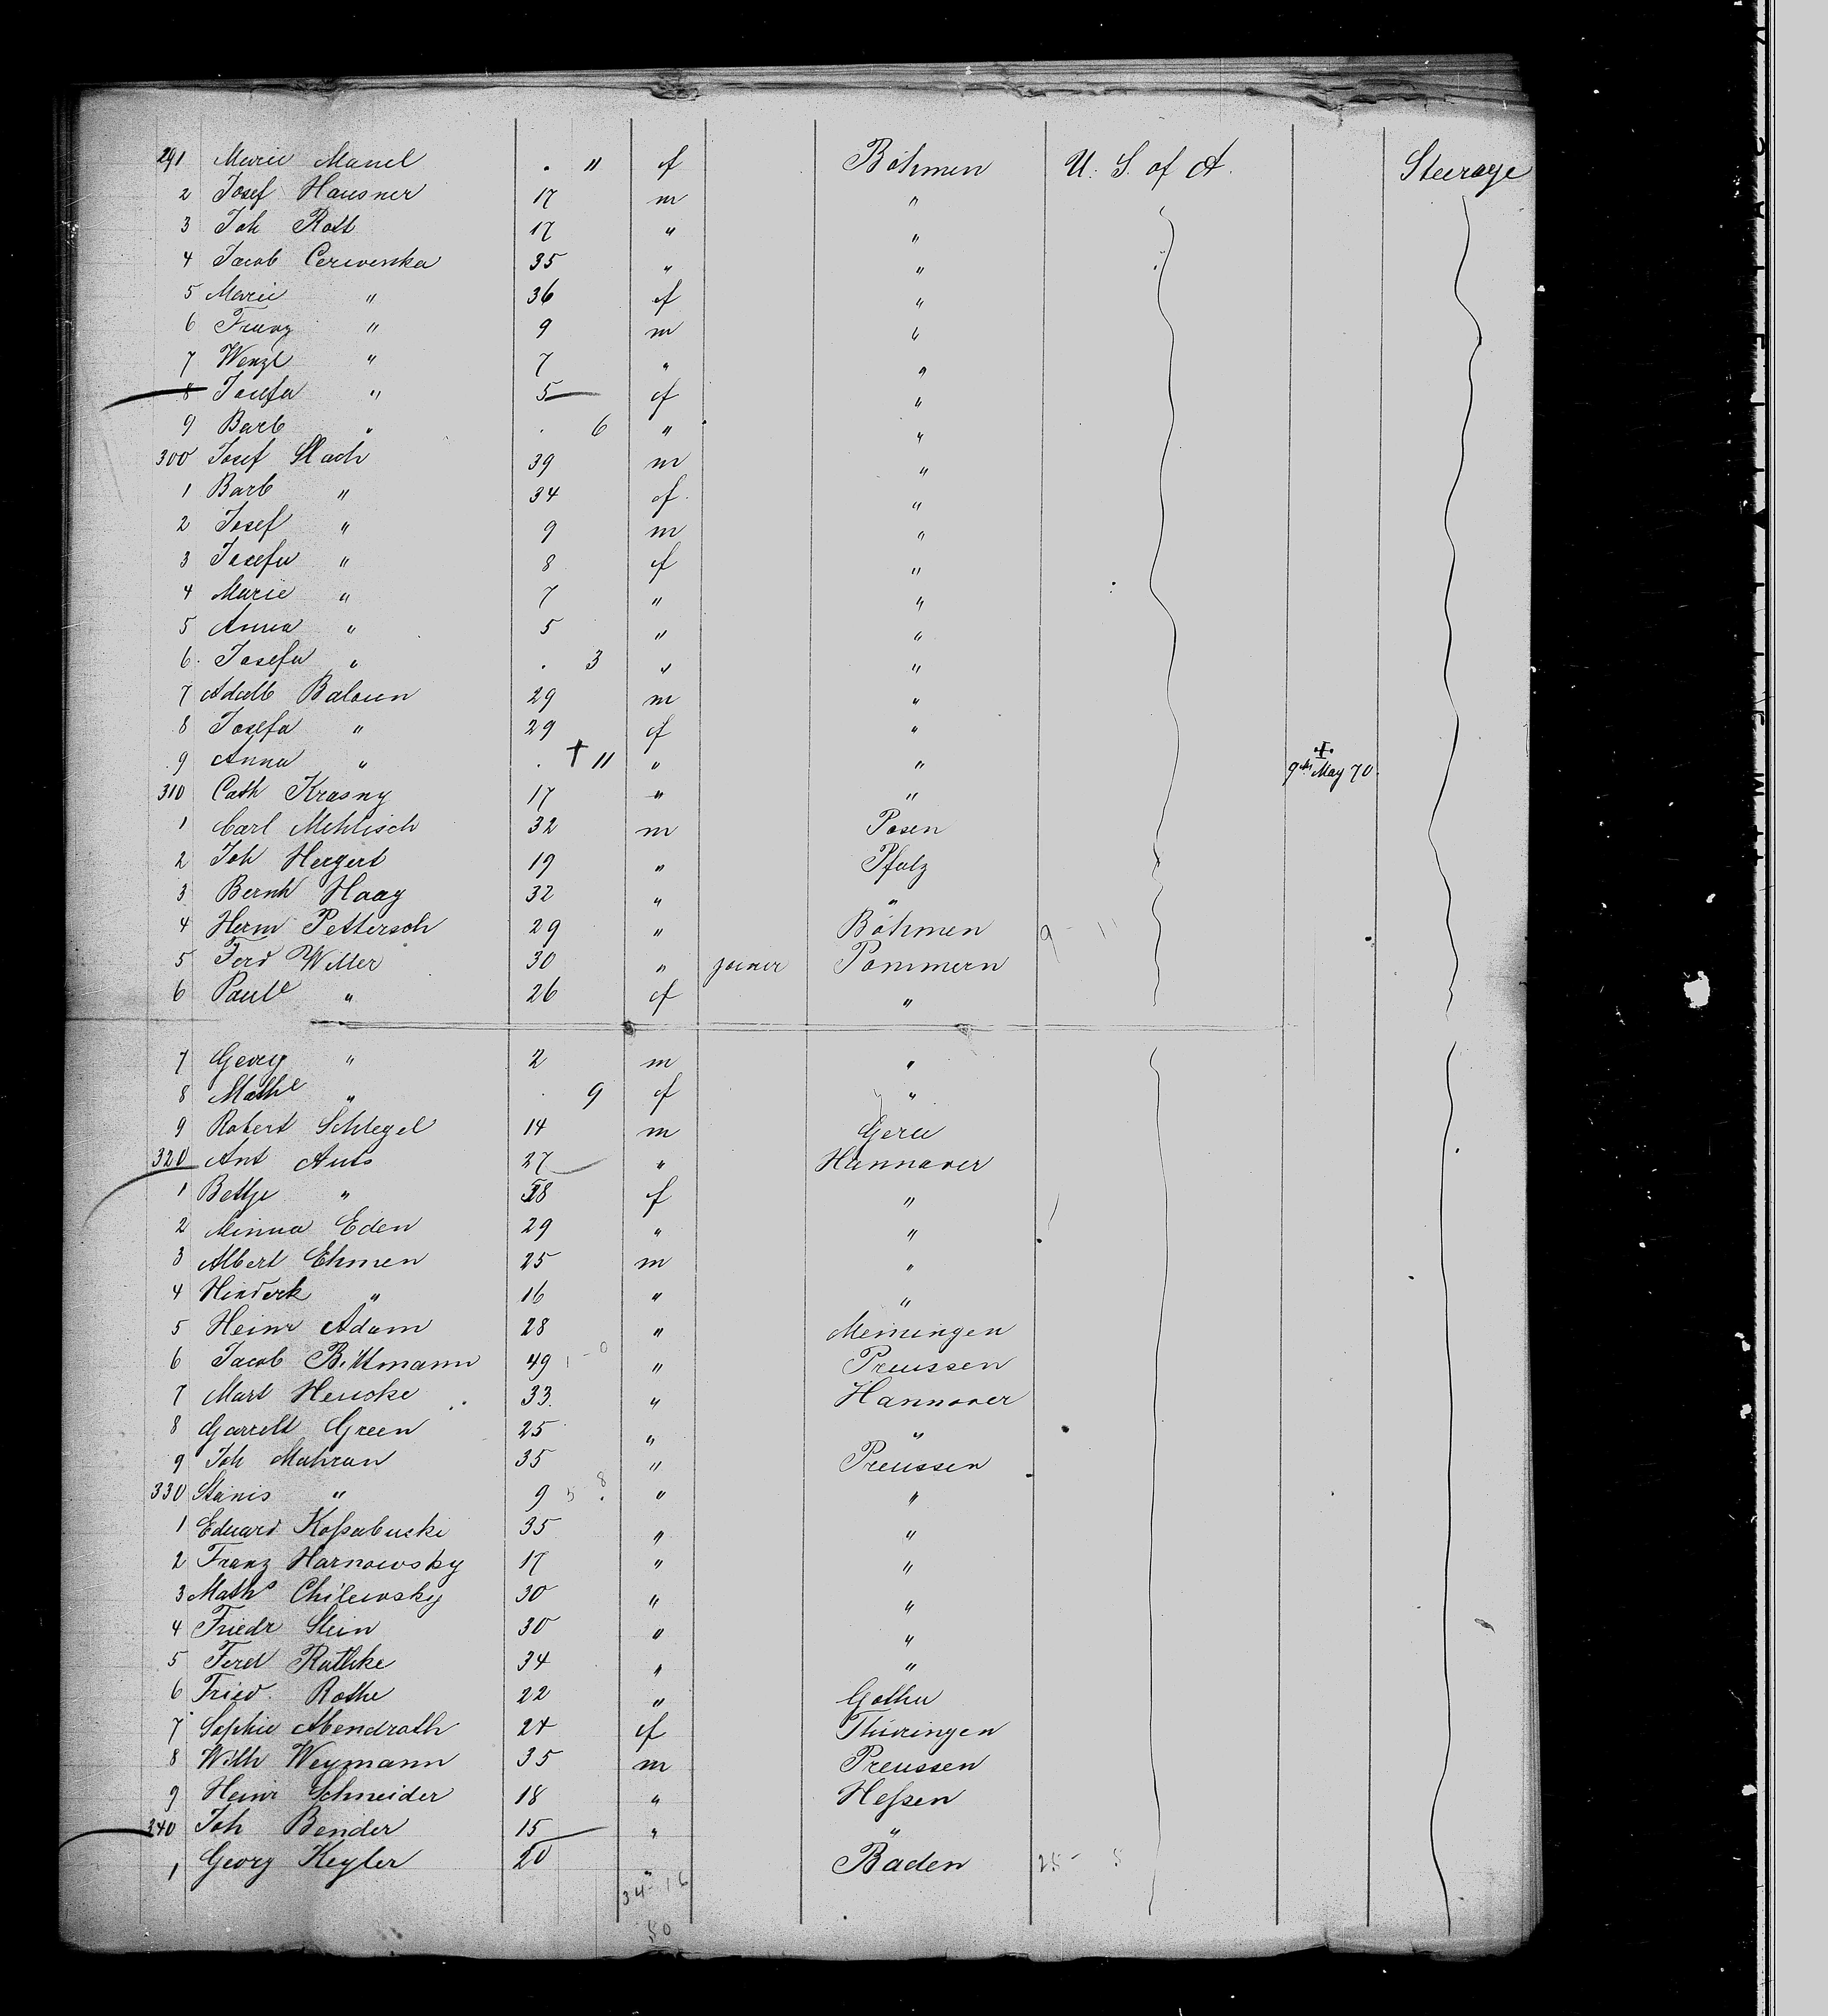 291 Marie Manel . " f Böhmen U. S. of A. Steerage
2 Josef Hausner 17 m "
3 Joh Rott 17 " "
4 Jacob Cerwenka 35 " "
5 Marie " 36 f "
6 Franz " 9 m "
7 Wenzl " 7 " "
8 Josefa " 5 f "
9 Barb " . 6 " "
300 Josef Stach 39 m "
1 Barb " 34 f "
2 Josef " 9 m "
3 Josefa " 8 f "
4 Marie " 7 " "
5 Anna " 5 " "
6 Josefa " . 3 " "
7 Adalb Baloun 29 m "
8 Josefa " 29 f "
9 Anna " . † 11 " " † 9th May 70.
310 Cath Krasny 17 " "
1 Carl Mehlisch 32 m Posen
2 Joh Hergert 19 " Pfalz
3 Bernh Haag 32 " "
4 Herm Pettersch 29 " Böhmen 9 - 11
5 Ferd Witter 30 " joiner Pommern
6 Paule " 26 f "
7 Georg " 2 m "
8 Mathe " . 9 f "
9 Robert Schlegel 14 m Gera
320 Ant Auts 27 " Hannover
1 Betje " 28 f "
2 Minna Eden 29 " "
3 Albert Ehmen 25 m "
4 Hinderk " 16 " "
5 Heinr Adam 28 " Meiningen
6 Jacob Bittmann 49 " Preussen
7 Mart Heucke 33. " Hannover
8 Garrelt Green 25 " "
9 Joh Mahran 35 " Preussen
330 Stanis " 9 " "
1 Eduard Koßabuski 35 " "
2 Franz Harnowsky 17 " "
3 Maths Chilewsky 30 " "
4 Friedr Stein 30 " "
5 Ferd Rathke 34 " "
6 Fried. Rothe 22 " Gotha
7 Sophie Abendroth 24 f Thüringen
8 Wilh Weymann 35 m Preussen
9 Heinr Schneider 18 " Heßen
340 Joh Bender 15 " "
1 Georg Kegler 20 " Baden 25 - 5
34 - 16
50